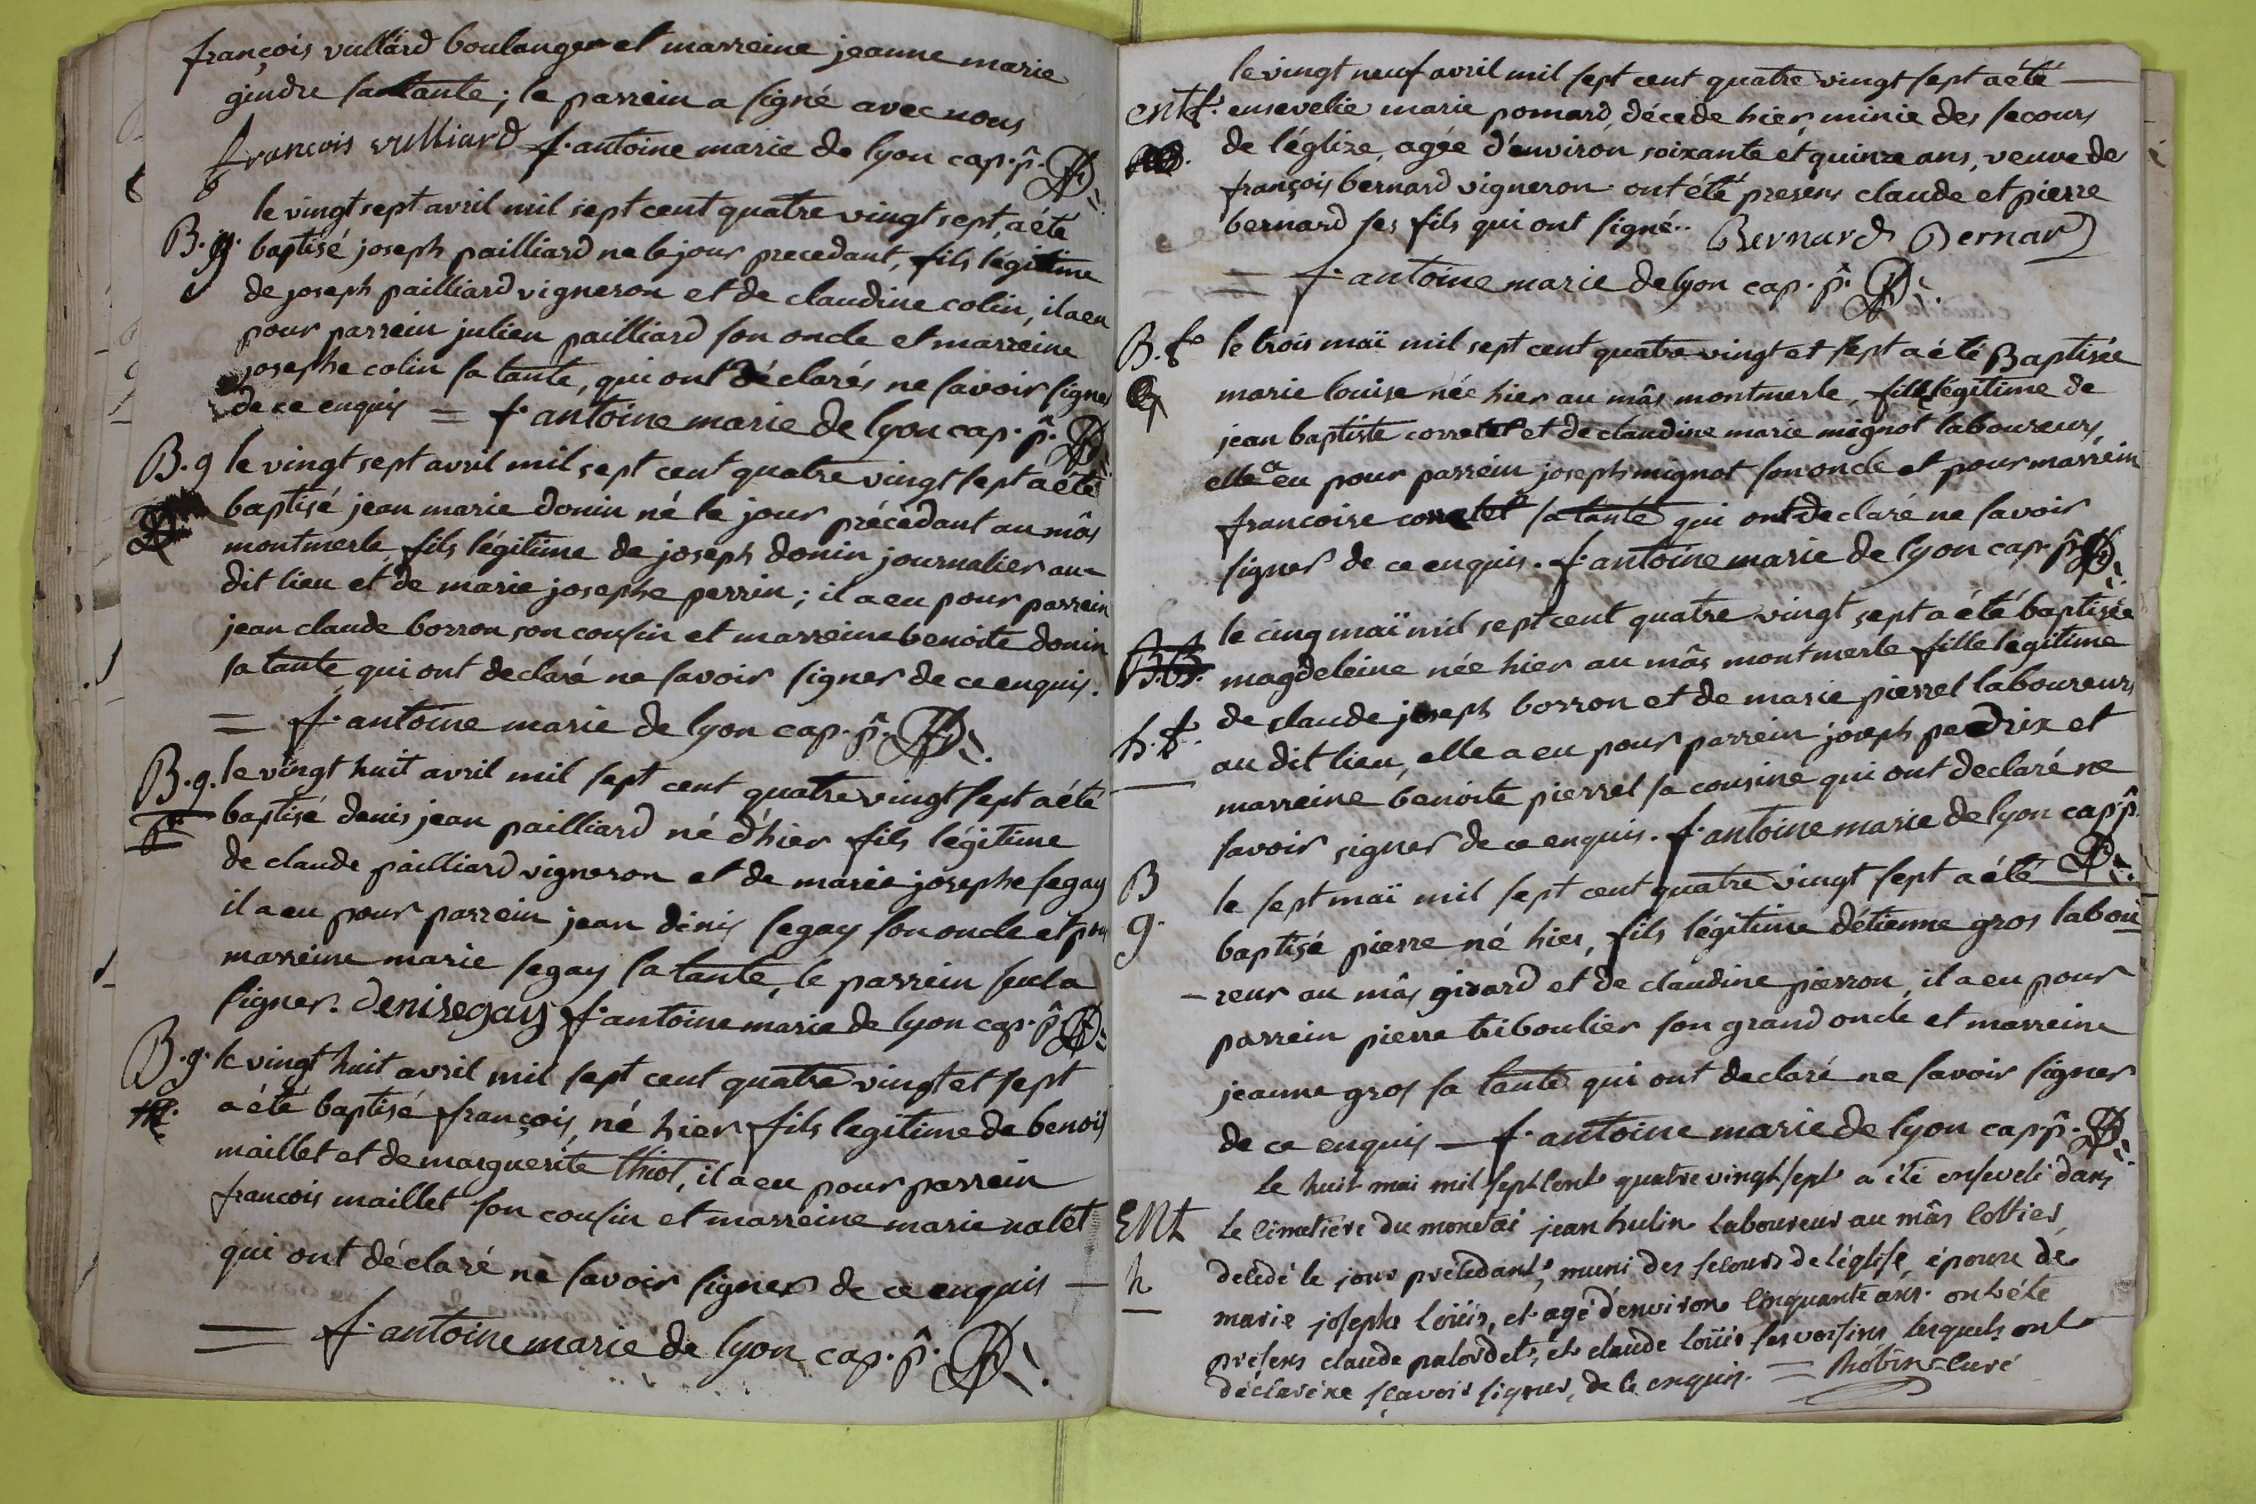 françois vulliard boulanger et marreine jeanne marie
gindre sa tante; le parrein a signé avec nous
françois vulliard f. antoine marie de lyon cap. p.
le vingt sept avril mil sept cent quatre vingt sept, a été
B. g. baptisé joseph pailliard ne le jour precedant, fils légitime
de joseph pailliard vigneron et de claudine colin, il a eu
pour parrein julien pailliard son oncle et marreine
josephe colin sa tante, qui ont déclarés ne savoir signer
de ce enquis = f. antoine marie de lyon cap. p.
B. g le vingt sept avril mil sept cent quatre vingt sept a été
baptisé jean marie donin né le jour précédant au mâs
montmerle fils légitime de joseph donin journalier au-
dit lieu et de marie josephe perrin; il a eu pour parrein
jean claude borron son cousin et marreine benoite donin
sa tante qui ont declaré ne savoir signer de ce enquis.
= f. antoine marie de lyon cap. p.
B. g. le vingt huit avril mil sept cent quatre vingt sept a été
baptisé denis jean pailliard né d'hier fils légitime
de claude pailliard vigneron et de marie josephe segay
il a eu pour parrein jean dénis segay son oncle et pour
marreine marie segay sa tante, le parrein seul a
signer. denisegay f. antoine marie de lyon cap. p.
B. g. le vingt huit avril mil sept cent quatre vingt et sept
a été baptisé françois, né hier fils legitime de benois
maillet et de marguerite thiot, il a eu pour parrein
francois maillet son cousin et marreine marie nalet
qui ont déclaré ne savoir signer de ce enquis —
= f. antoine marie de lyon cap. p.
le vingt neuf avril mil sept cent quatre vingt sept a été —
ent f. ensevelie marie pomard, décede hier, minie des secours
de l'églize, agée d'environ soixante et quinze ans, veuve de
françois bernard vigneron ont été presens claude et pierre
bernard ses fils qui ont signé.. Bernard Bernard
= f. antoine marie de lyon cap. p.
B. f. le trois maï mil sept cent quatre vingt et sept a été Baptisée
marie louise née hier au mâs montmerle, fille légitime de
jean baptiste corretel et de claudine marie mignot laboureurs
elle a eu pour parrein joseph mignot son oncle et pour marrein
francoise corretel sa tante qui ont declaré ne savoir
signer de ce enquis. f. antoine marie de lyon cap. p.
le cinq maï mil sept cent quatre vingt sept a été baptisée
B. B. magdeleine née hier au mâs montmerle fille légitime
de claude joseph borron et de marie pierrel laboureurs
h. f. au dit lieu, elle a eu pour parrein joseph pedrix et
marreine benoite pierrel sa cousine qui ont declaré ne
savoir signer de ce enquis. f. antoine marie de lyon cap p.
B le sept maï mil sept cent quatre vingt sept a été
g. baptisé pierre né hier, fils légitime d'étienne gros labou
- reur au mâs girard et de claudine pierron, il a eu pour
parrein pierre triboulier son grand oncle et marreine
jeanne gros sa tante qui ont declaré ne savoir signer
de ce enquis — f. antoine marie de lyon cap. p.
Le huit mai mil sept cent quatre vingt sept a été enseveli dans
Ent le cimetiére du monetai jean hulin laboureur au mâs cottier
h décédé le jour précédant, muni des secours de l'église, époux de
marie josephe loüis, et agé d'environ cinquante ans. ont été
présens claude palordet, et claude loüis ses voisins lesquels ont
déclaré ne sçavoir signer, de ce enquis. = Robin curé